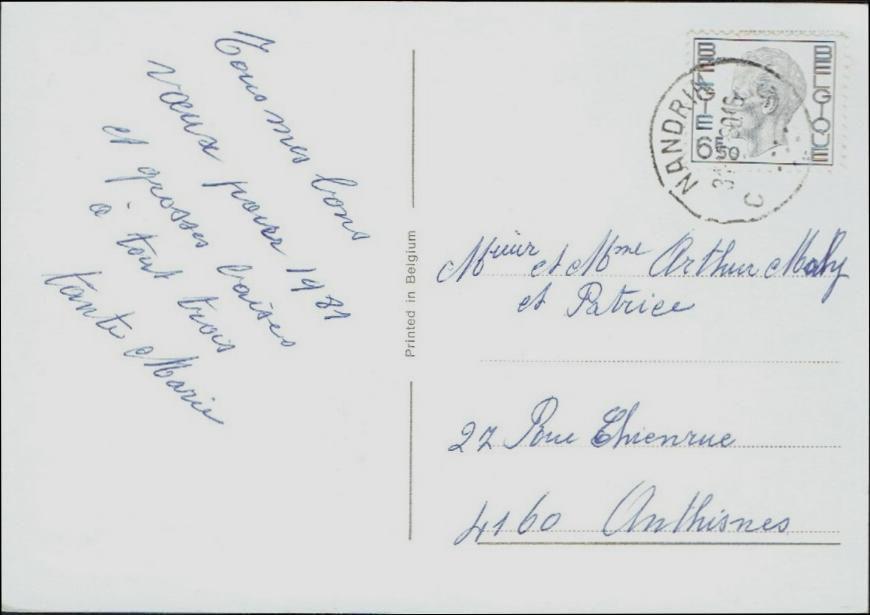 Tous mes bons
vœux pour 1981
et grosses baises
à tout trois
tante Marie
Printed in Belgium
BELGIE
BELGIQUE
6F50
NANDRIN
C
Msieur et Mme Arthur Mahy
et Patrice
27 Rue Chienrue
4160 Anthisnes